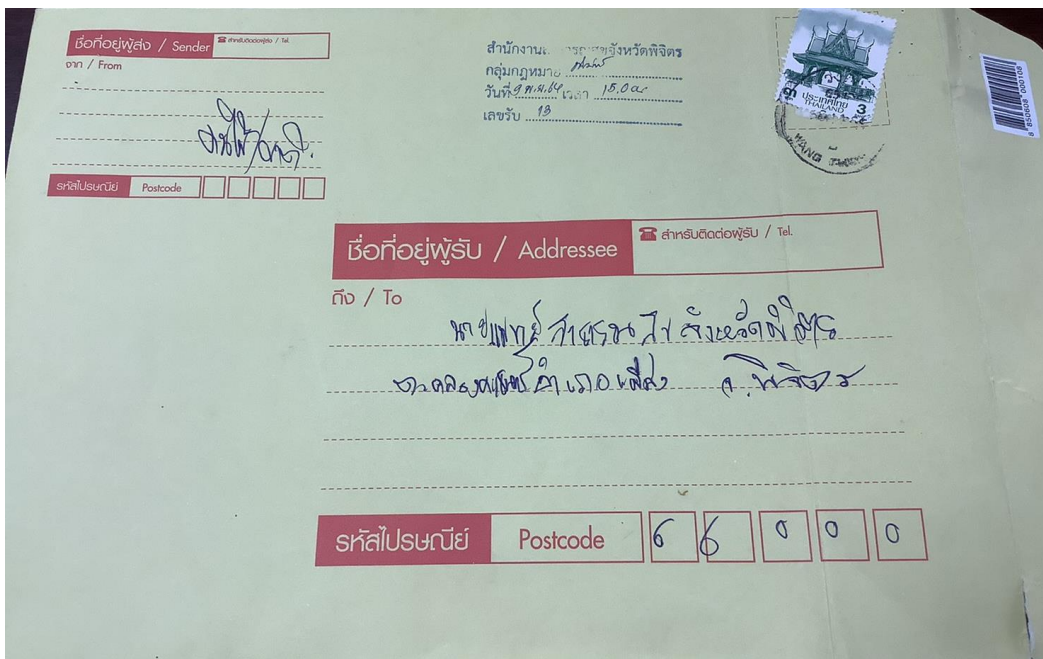 ชื่อที่อยู่ผู้ส่ง / Sender ☎ สำหรับติดต่อผู้ส่ง / Tel.
จาก / From
รหัสไปรษณีย์ Postcode
สำนักงานสาธารณสุขจังหวัดพิจิตร
กลุ่มกฎหมาย
วันที่ 9 พ.ย. 64 เวลา 15.00
เลขรับ 13
ประเทศไทย 3
THAILAND
WANG
8 850608 000108
ชื่อที่อยู่ผู้รับ / Addressee ☎ สำหรับติดต่อผู้รับ / Tel.
ถึง / To
นายแพทย์สาธารณสุขจังหวัดพิจิตร
ต.คลองคะเชนทร์ อำเภอเมือง จ.พิจิตร
รหัสไปรษณีย์ Postcode 6 6 0 0 0